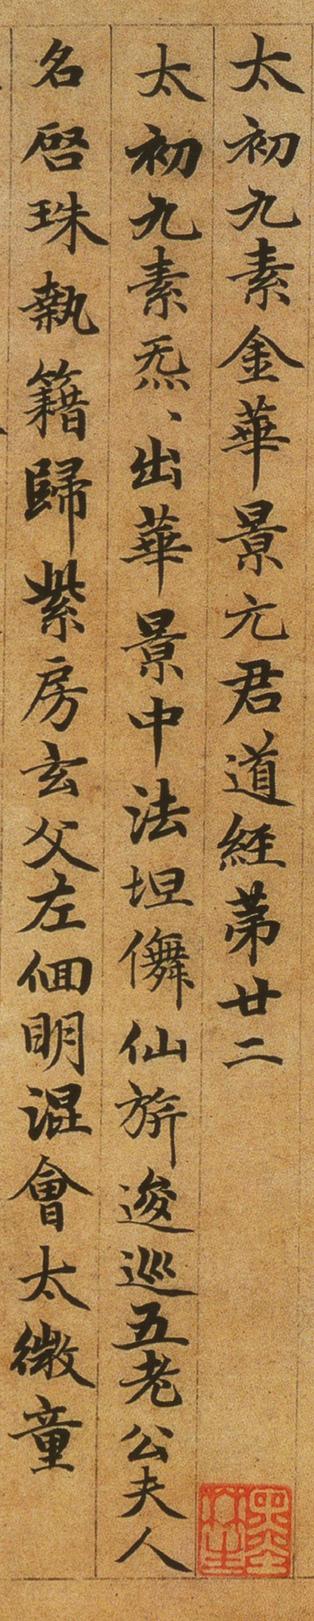 太初九素金華景元君道經苐廿二
太初九素炁、出華景中法坦儛仙旂逡巡五老公夫人
名啓珠執籍歸紫房玄父左佪明混會太微童